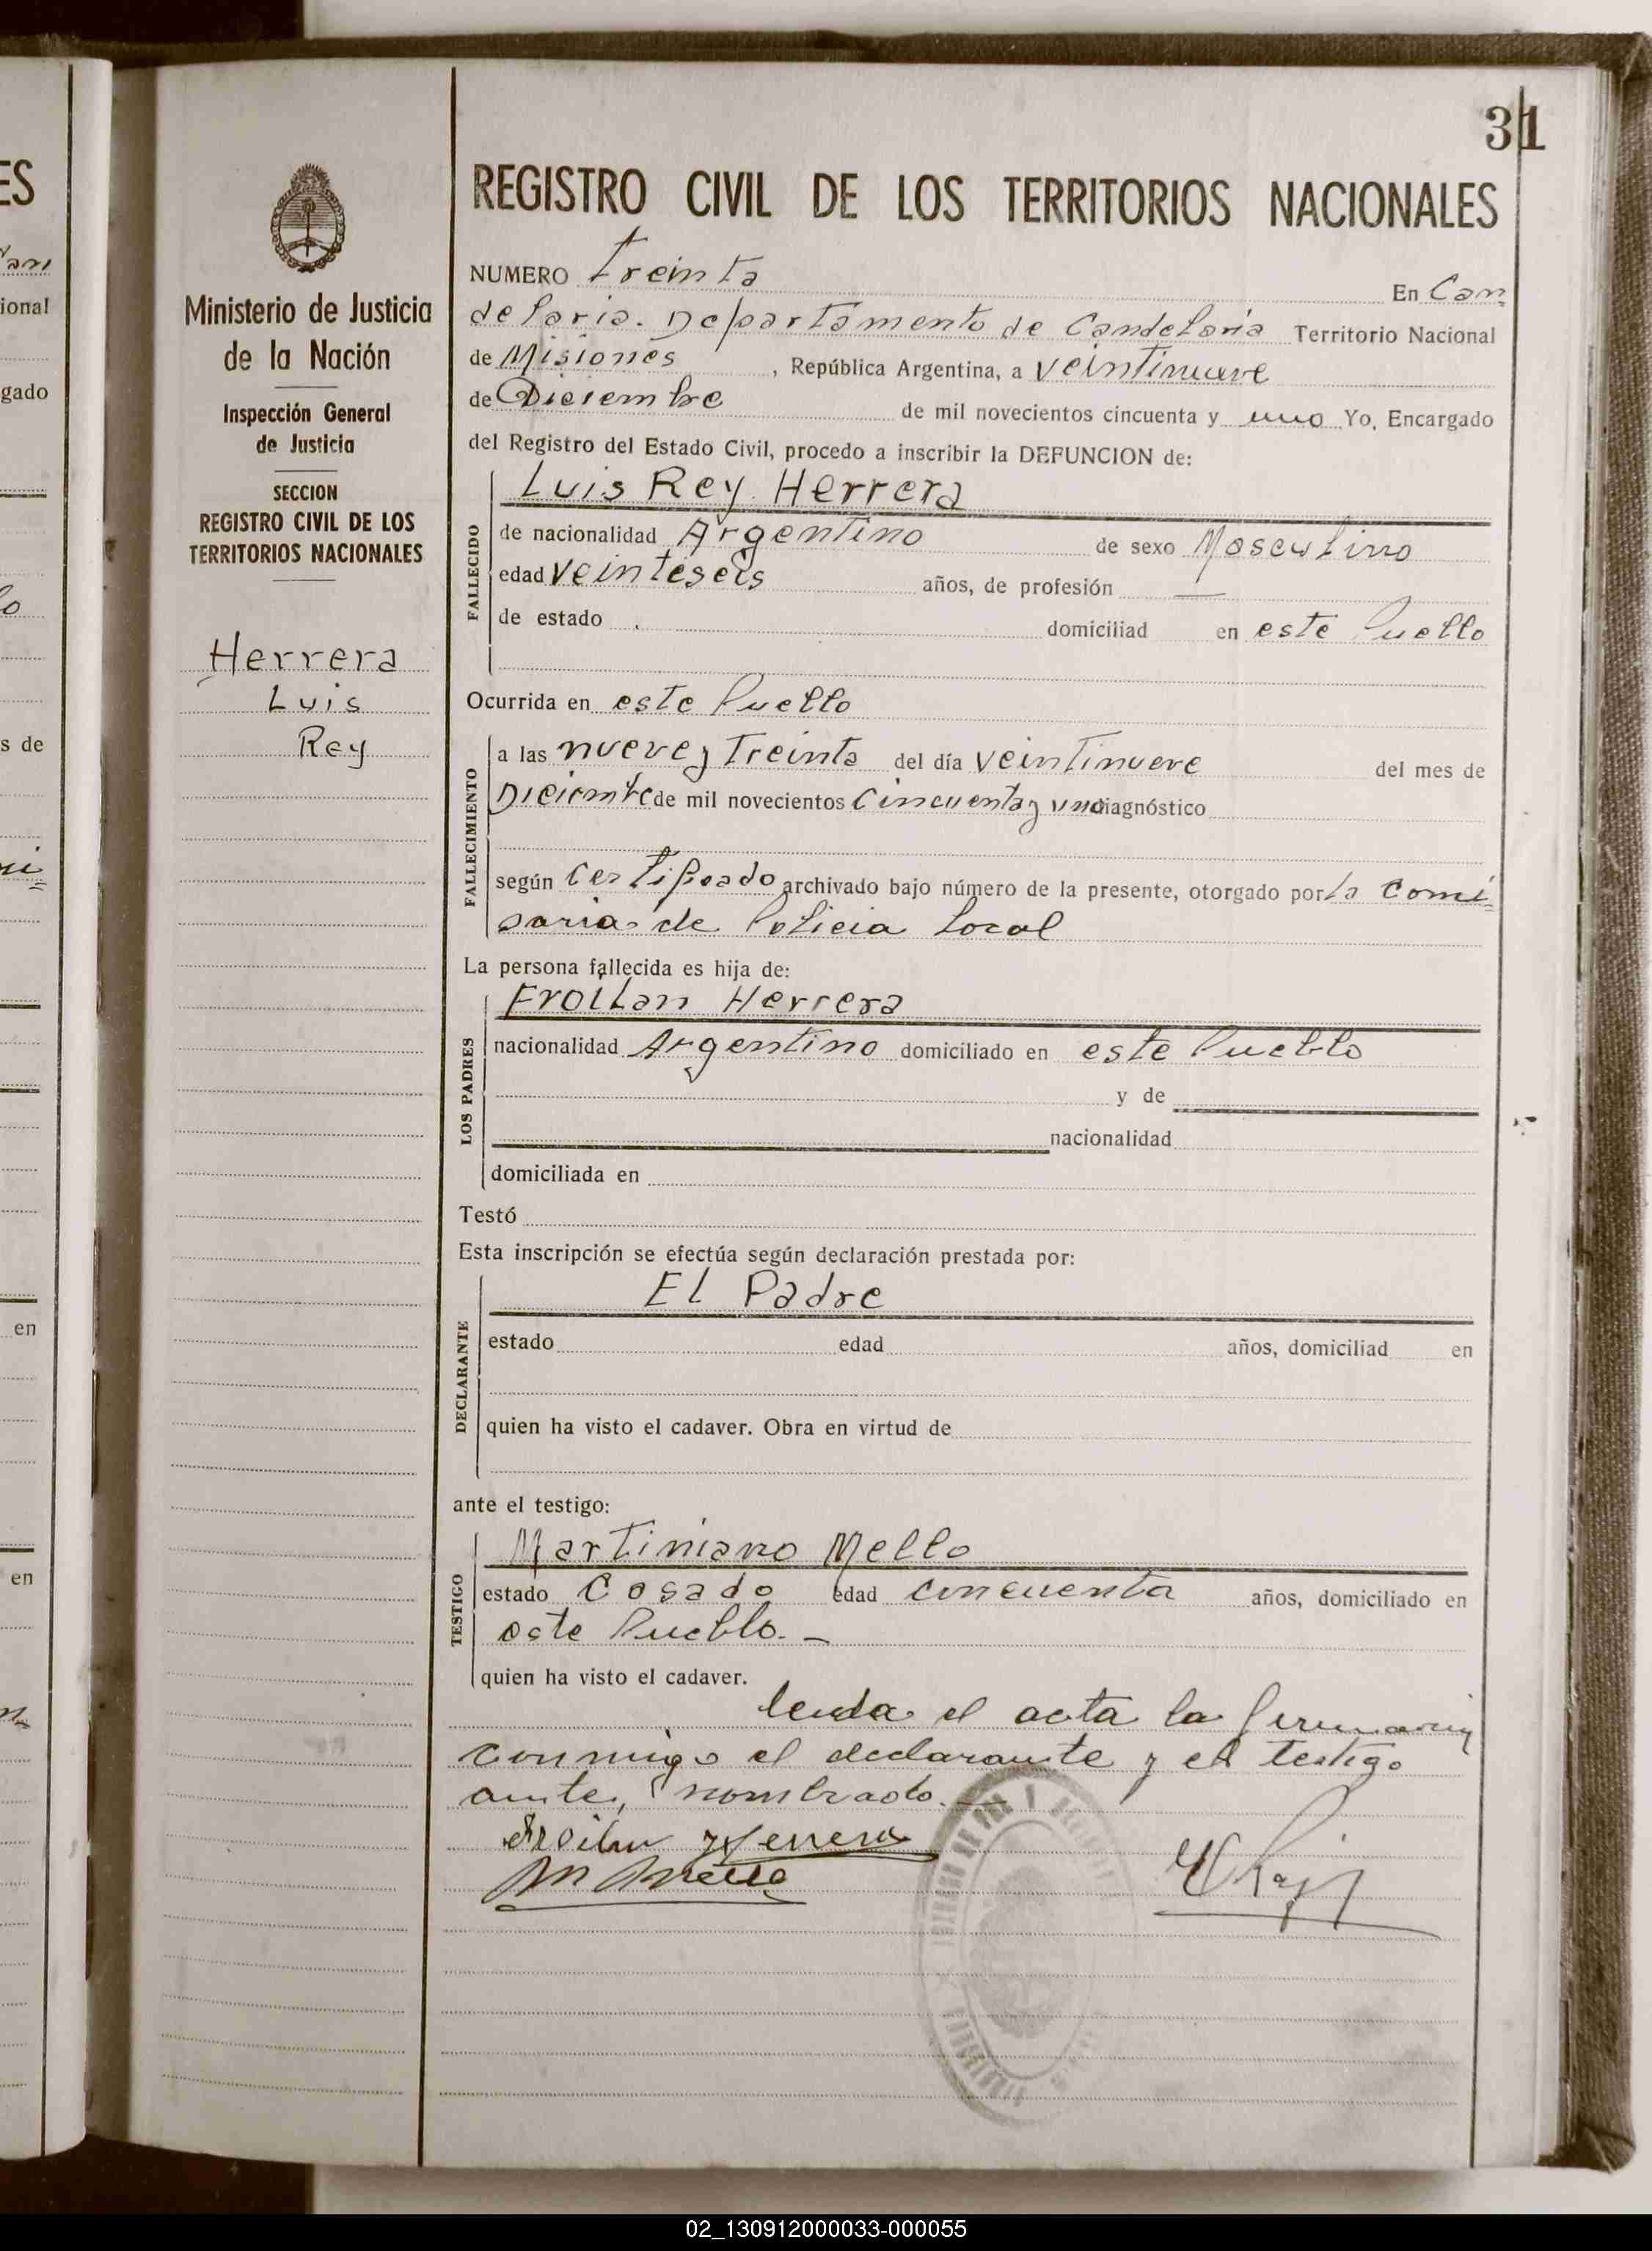 31
REGISTRO CIVIL DE LOS TERRITORIOS NACIONALES
Ministerio de Justicia
de la Nación
Inspección General
de Justicia
SECCION
REGISTRO CIVIL DE LOS
TERRITORIOS NACIONALES
Herrera
Luis
Rey
NUMERO treinta En Can=
delaria. Departamento de Candelaria Territorio Nacional
de Misiones, República Argentina, a veintinueve
de Diciembre de mil novecientos cincuenta y uno Yo, Encargado
del Registro del Estado Civil, procedo a inscribir la DEFUNCION de:
FALLECIDO
Luis Rey Herrera
de nacionalidad Argentino de sexo Masculino
edad veinteseis años, de profesión —
de estado domiciliad en este Pueblo
Ocurrida en este Pueblo
FALLECIMIENTO
a las nueve y treinta del día veintinueve del mes de
Diciembre de mil novecientos cincuenta y uno diagnóstico
según certificado archivado bajo número de la presente, otorgado por la Comi=
saria de Policia Local
La persona fallecida es hija de:
LOS PADRES
Froilan Herrera
nacionalidad Argentino domiciliado en este Pueblo
y de
nacionalidad
domiciliada en
Testó
Esta inscripción se efectúa según declaración prestada por:
DECLARANTE
El Padre
estado edad años, domiciliad en
quien ha visto el cadaver. Obra en virtud de
ante el testigo:
TESTIGO
Martiniano Mello
estado Casado edad cincuenta años, domiciliado en
este Pueblo. —
quien ha visto el cadaver.
leida el acta la firman
conmigo el declarante y el testigo
ante, nombrado. —
Froilan Herrera
M Mello
ES
ional
gado
s de
en
en
02_130912000033-000055